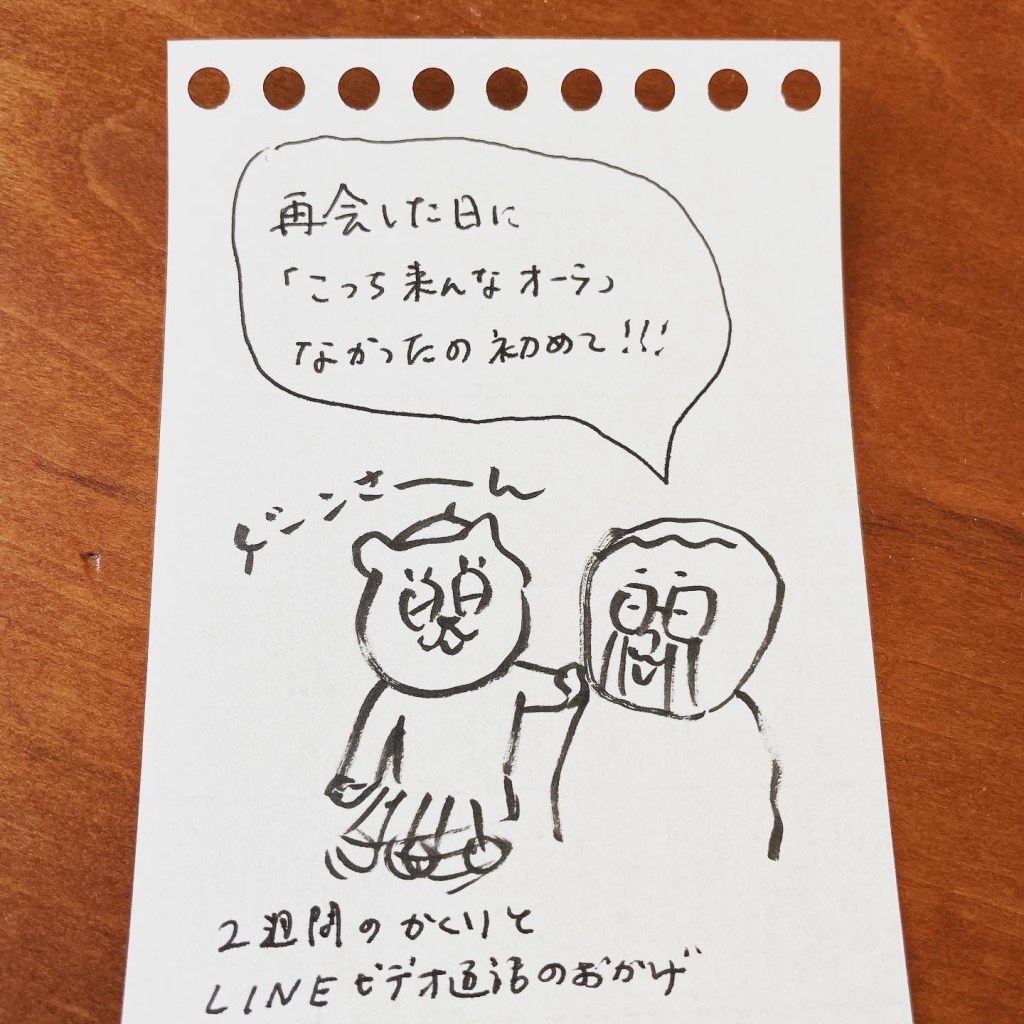 再会した日に
「こっち来んなオーラ」
なかったの初めて!!!
ゲーンさーん
2週間のかくりと
LINEビデオ通話のおかげ